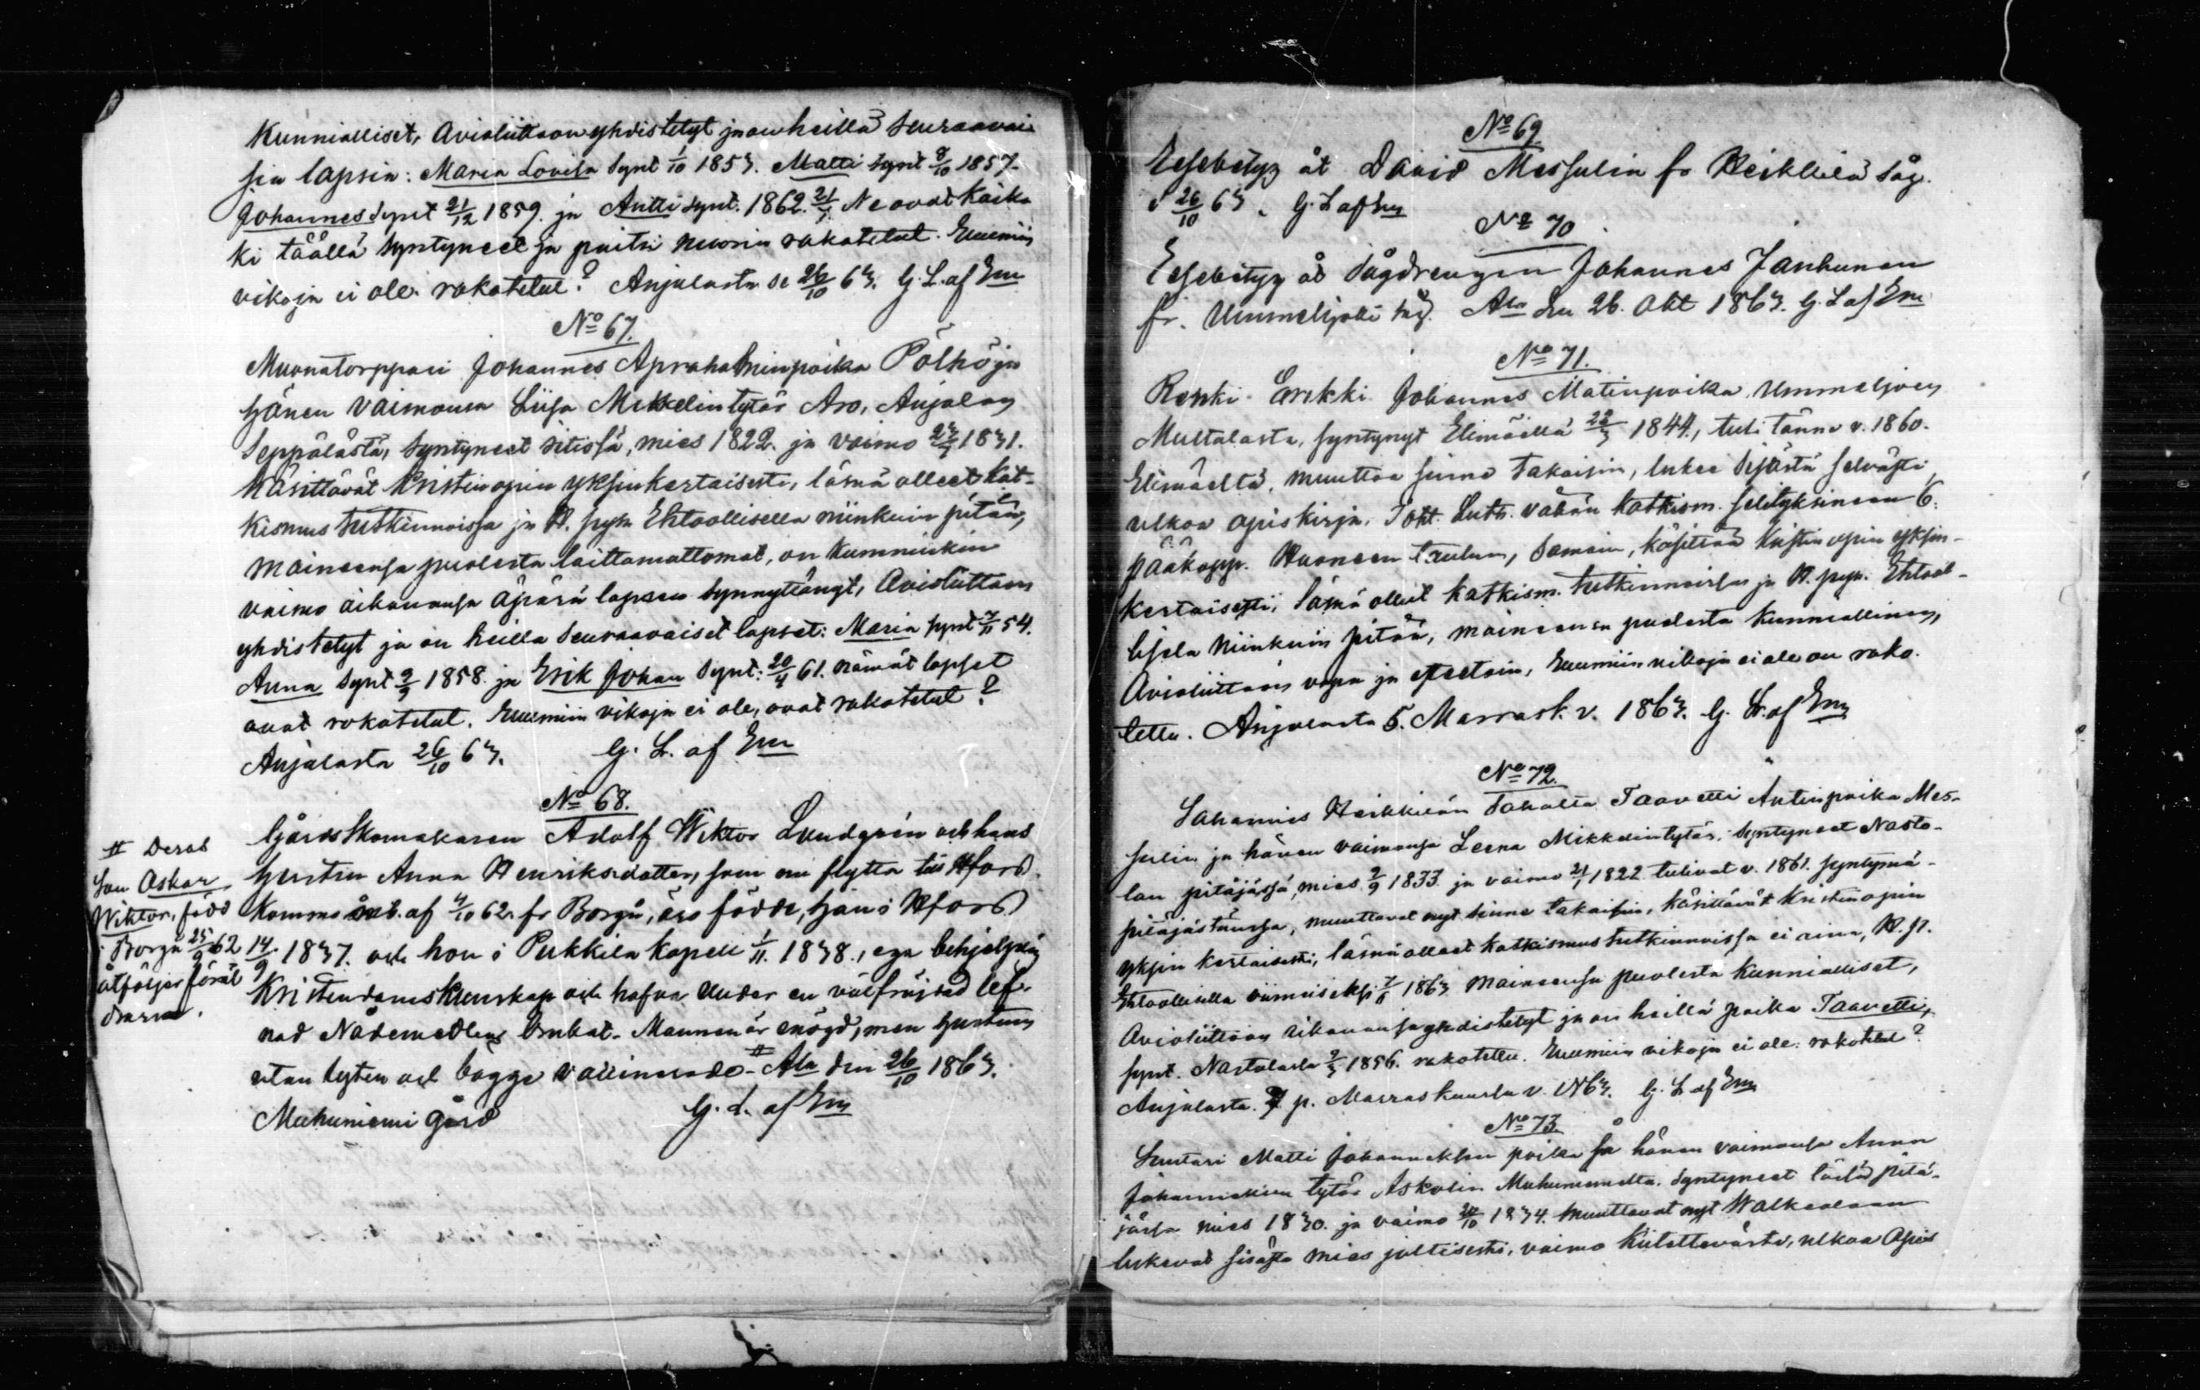 Kunnialliset, Avioliittoon yhdistetyt ja on heillä seuraavai
sia lapsia: Maria Lovisa synt 1/10 1853. Matti synt 8/10 1857.
Johannes synt 21/12 1859. ja Antti synt. 1862 21/7 Ne ovat kaik
ki täällä syntyneet ja paitsi nuorin rokotetut. Ruumiin
vikoja ei ole. rokotetut? Anjalasta se 26/10 63. G. L. af Em
No 67.
Muonatorppari Johannes Aprahaminpoika Pölhö ja
hänen vaimonsa Liisa Mikkelintytär Aro, Anjalan
Seppälästä, syntyneet sitissä, mies 1822. ja vaimo 1831.
Käsittävät kristinopin yksinkertaisesti, läsnä olleet kat-
kismus tutkinnoissa ja H. pyh. Ehtoollisella niinkuin pitää,
maineensa puolesta laittamattomat, on kumminkin
vaimo aikanansa äpärä lapsen synnyttänyt, Avioliittoon
yhdistetyt ja on heillä seuraavaiset lapset: Maria synt 7/11 54.
Anna synt 9/9 1858. ja Erik Johan synt: 20/4 61. nämät lapset
ovat rokotetut. Ruumiin vikoja ei ole, ovat rokotetut?
Anjalasta 26/10 63. G. L. af Em
No 68.
Gårds Skomakaren Adolf Wiktor Lundqvén och hans
hustru Anna Henriksdotter, som nu flytta till Hfors.
komme af 4/10 62 fr Borgå, äro födde, han i Hfors
14/9 1837. och hon i Pukkila kapell 1/11 1838., ega behjelplig
Kristendomskunskap och hafva under en välfräjdad lef-
nad Nådemedlen brukat. Mannen är enögd, men hustrun
utan lyten och bägge vaccinerade # Ala den 26/10 1863.
Muhuniemi gård G. L. af Em
# Deras
Son Oskar
Wiktor, född
i Borgå 25/9 62
åtföljer föräl
drarne.
No 69.
Eessbetyg åt David Messulin fr Heikkilä såg.
d 26/10 63. G. L af Em
No 70
Eessbetyg åt sågdrengen Johannes Janhunen
fr. Ummeljoki såg. Ala den 26. Okt 1863. G. L af Em
No 71.
Renki Erikki Johannes Matinpoika Ummeljoen
Multalasta, syntynyt Elimäellä 22/3 1844., tuli tänne v. 1860.
Elimäeltä, muuttaa sinne takaisin, lukee sisästä selvästi,
ulkoa apiskirja, Toht. Luth. vähän katkism. selityksineen 6.
pääkapp. Huoneen taulun, samoin, käsittää Kristin opin yksin-
kertaisesti, läsnä ollut katkism. tutkinnoissa ja H. pyh. Ehtool-
lisella niinkuin pitää, maineensa puolesta kunniallinen,
Avioliittoon vapa ja esteetoin, Ruumiin vikoja ei ole on roko-
tettu. Anjalasta 5. Marrask. v. 1863. G. L. af Em
No 72.
Sahamies Heikkilän sahalta Taavetti Antinpoika Mes-
sulin ja hänen vaimonsa Leena Mikkelintytär, syntyneet Nasto-
lan pitäjässä, mies 2/9 1833 ja vaimo 21/1 1822 tulivat v. 1861. syntymä-
pitäjästänsä, muuttavat nyt sinne takaisin, käsittävät Kristinopin
yksin kertaisesti, läsnä olleet katkismus tutkinnoissa ei aina, H. P.
Ehtoollisella viimeiseksi 7/6 1863 maineensa puolesta kunnialliset,
Avioliittoon aikanansa yhdistetyt ja on heillä poika Taavetti,
synt. Nastolasla 2/3 1856. rokotettu. Ruumiin vikoja ei ole. rokotetut?
Anjalasta. 7 p. Marraskuulla v. 1863. G. L af Em
No 73
Suutari Matti Johanneksen poika ja hänen vaimonsa Anna
Johanneksen tytär Askolin Muhuniemeltä. Syntyneet tässä pitä-
jässä mies 1830. ja vaimo 1834. muuttavat nyt Walkealaan
lukevat sisästä mies joltisesti, vaimo kiitettävästi, ulkoa Apis